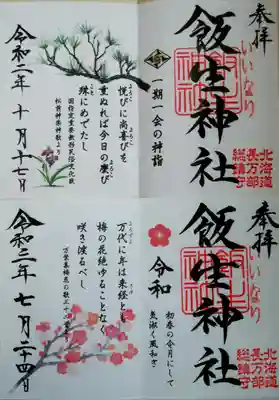 奉拝
いいなり
飯生神社
北海道
長万部
総鎮守
一期一会の神詣
悦びに尚喜びを
重ぬれば今日の慶び
殊にめでたし
国指定重要無形民俗文化財
松前神楽神歌より
令和二年十月十七日
奉拝
いいなり
飯生神社
北海道
長万部
総鎮守
令和
初春の令月にして
気淑く風和ぎ
万代に年は来経とも
梅の花絶ゆることなく
咲き渡るべし
万葉集梅花の歌三十二首
令和三年七月二十四日